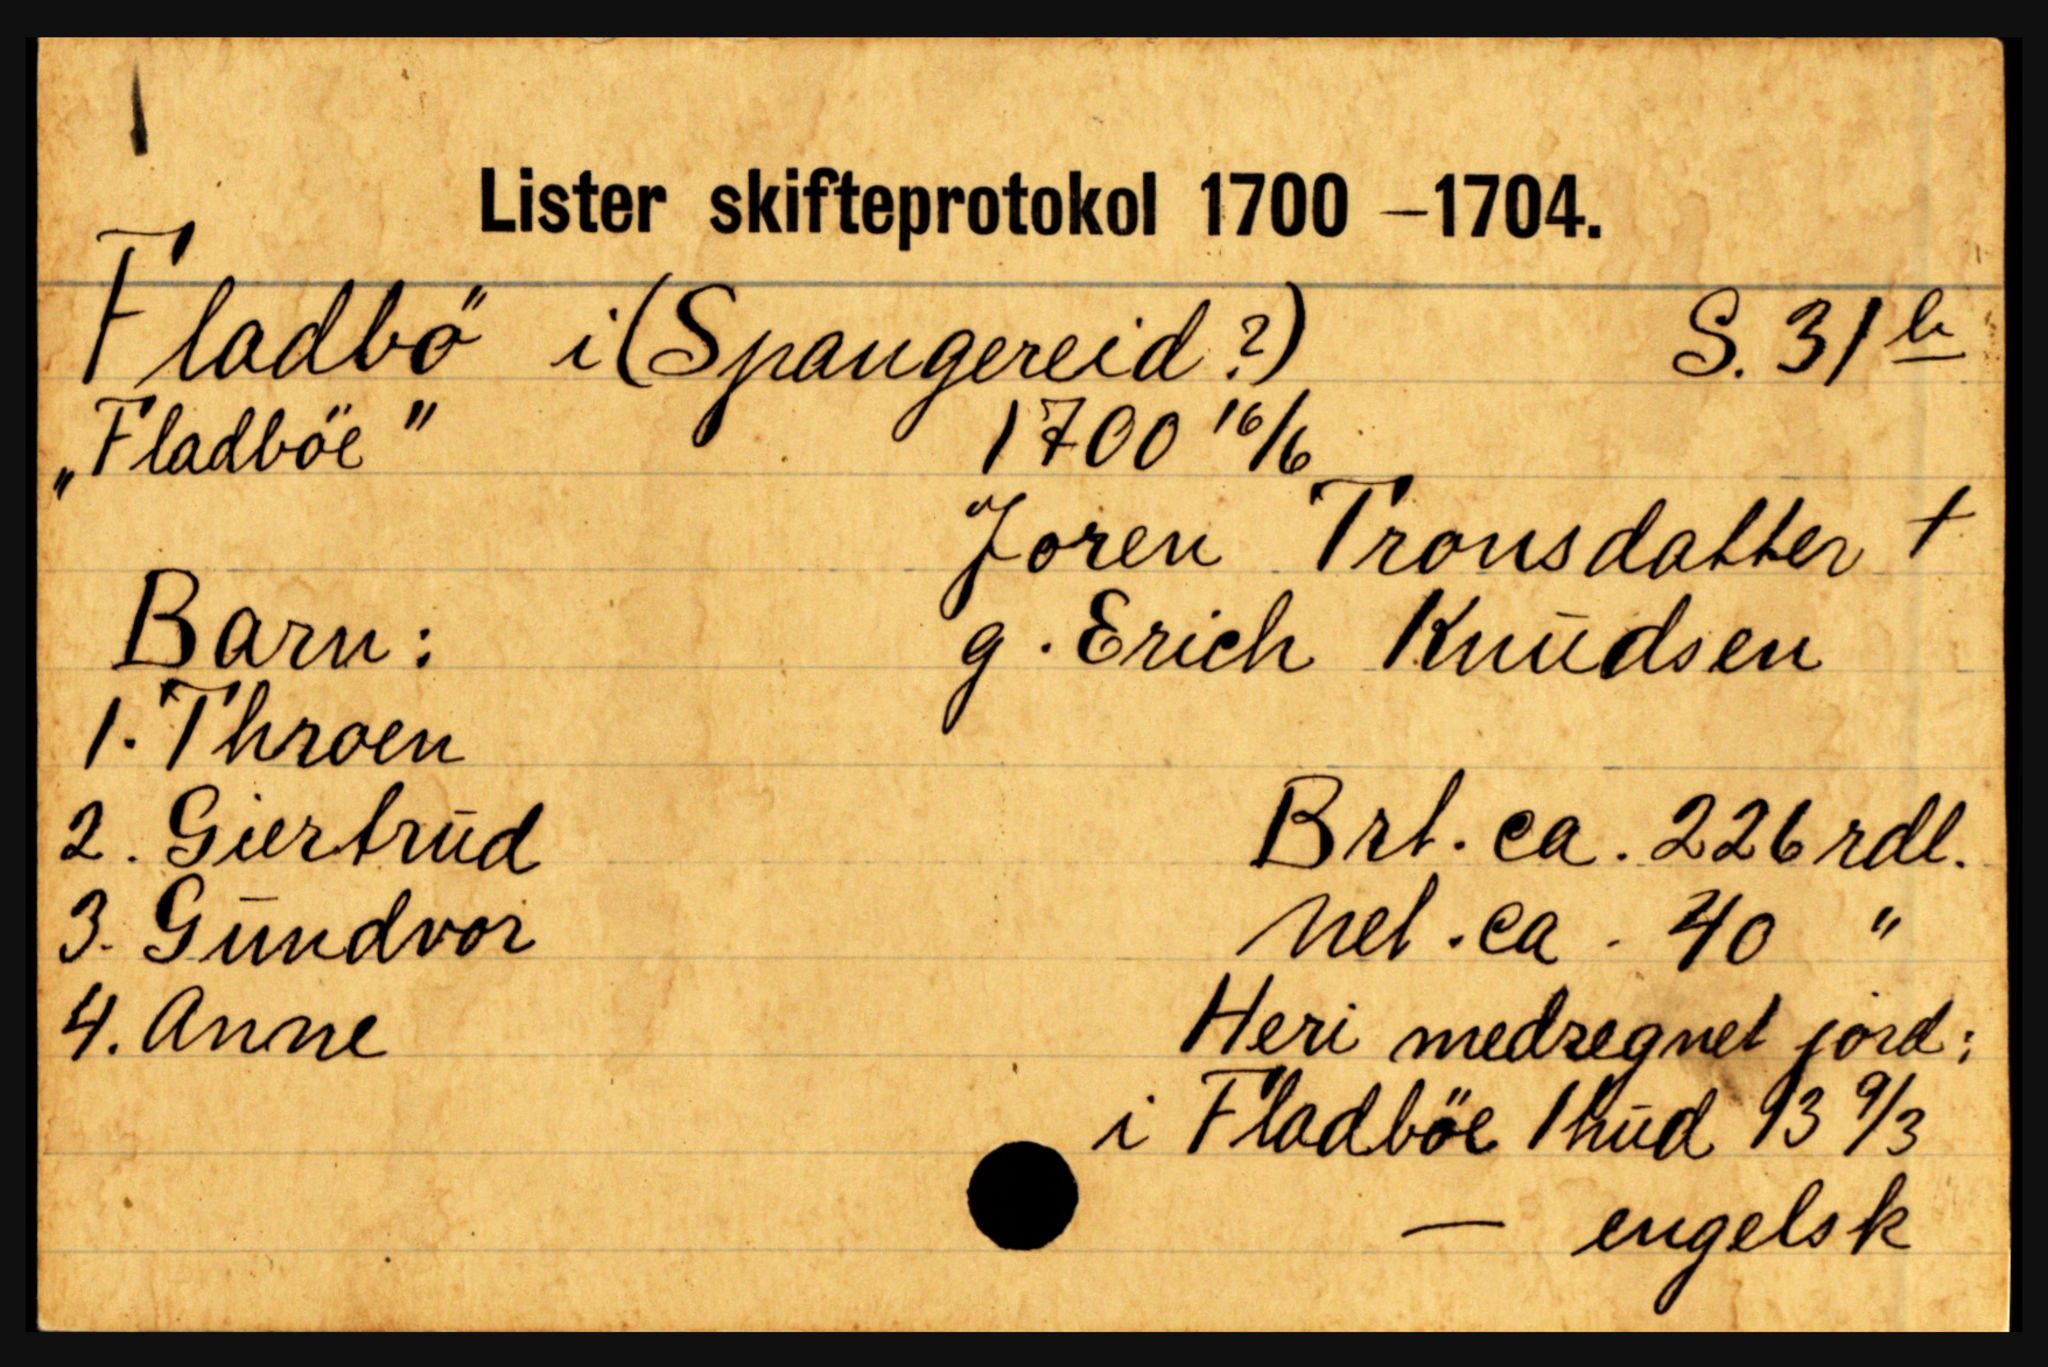 Lister skifteprotokol 1700 –1704.
Fladbö i (Spangereid?) S. 31 b
„Fladböe" 1700 16/6
Joren Tronsdatter †
Barn: g. Erich Knudsen
1. Throen
2. Giertrud Brt. ca. 226 rdl.
3. Gundvor Net. ca. 40 "
4. Anne Heri medregnet jord:
i Fladböe 1 hud 13 9/3
— engelsk